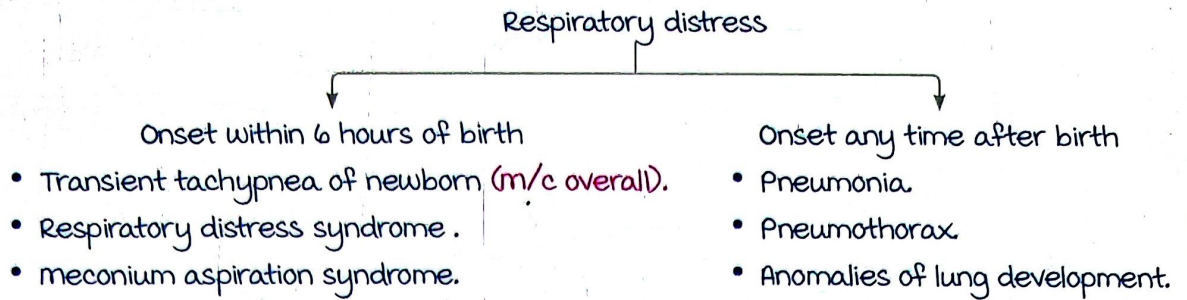 Respiratory distress
Onset within 6 hours of birth
• Transient tachypnea of newborn (m/c overall).
• Respiratory distress syndrome.
• meconium aspiration syndrome.
Onset any time after birth
• Pneumonia.
• Pneumothorax
• Anomalies of lung development.